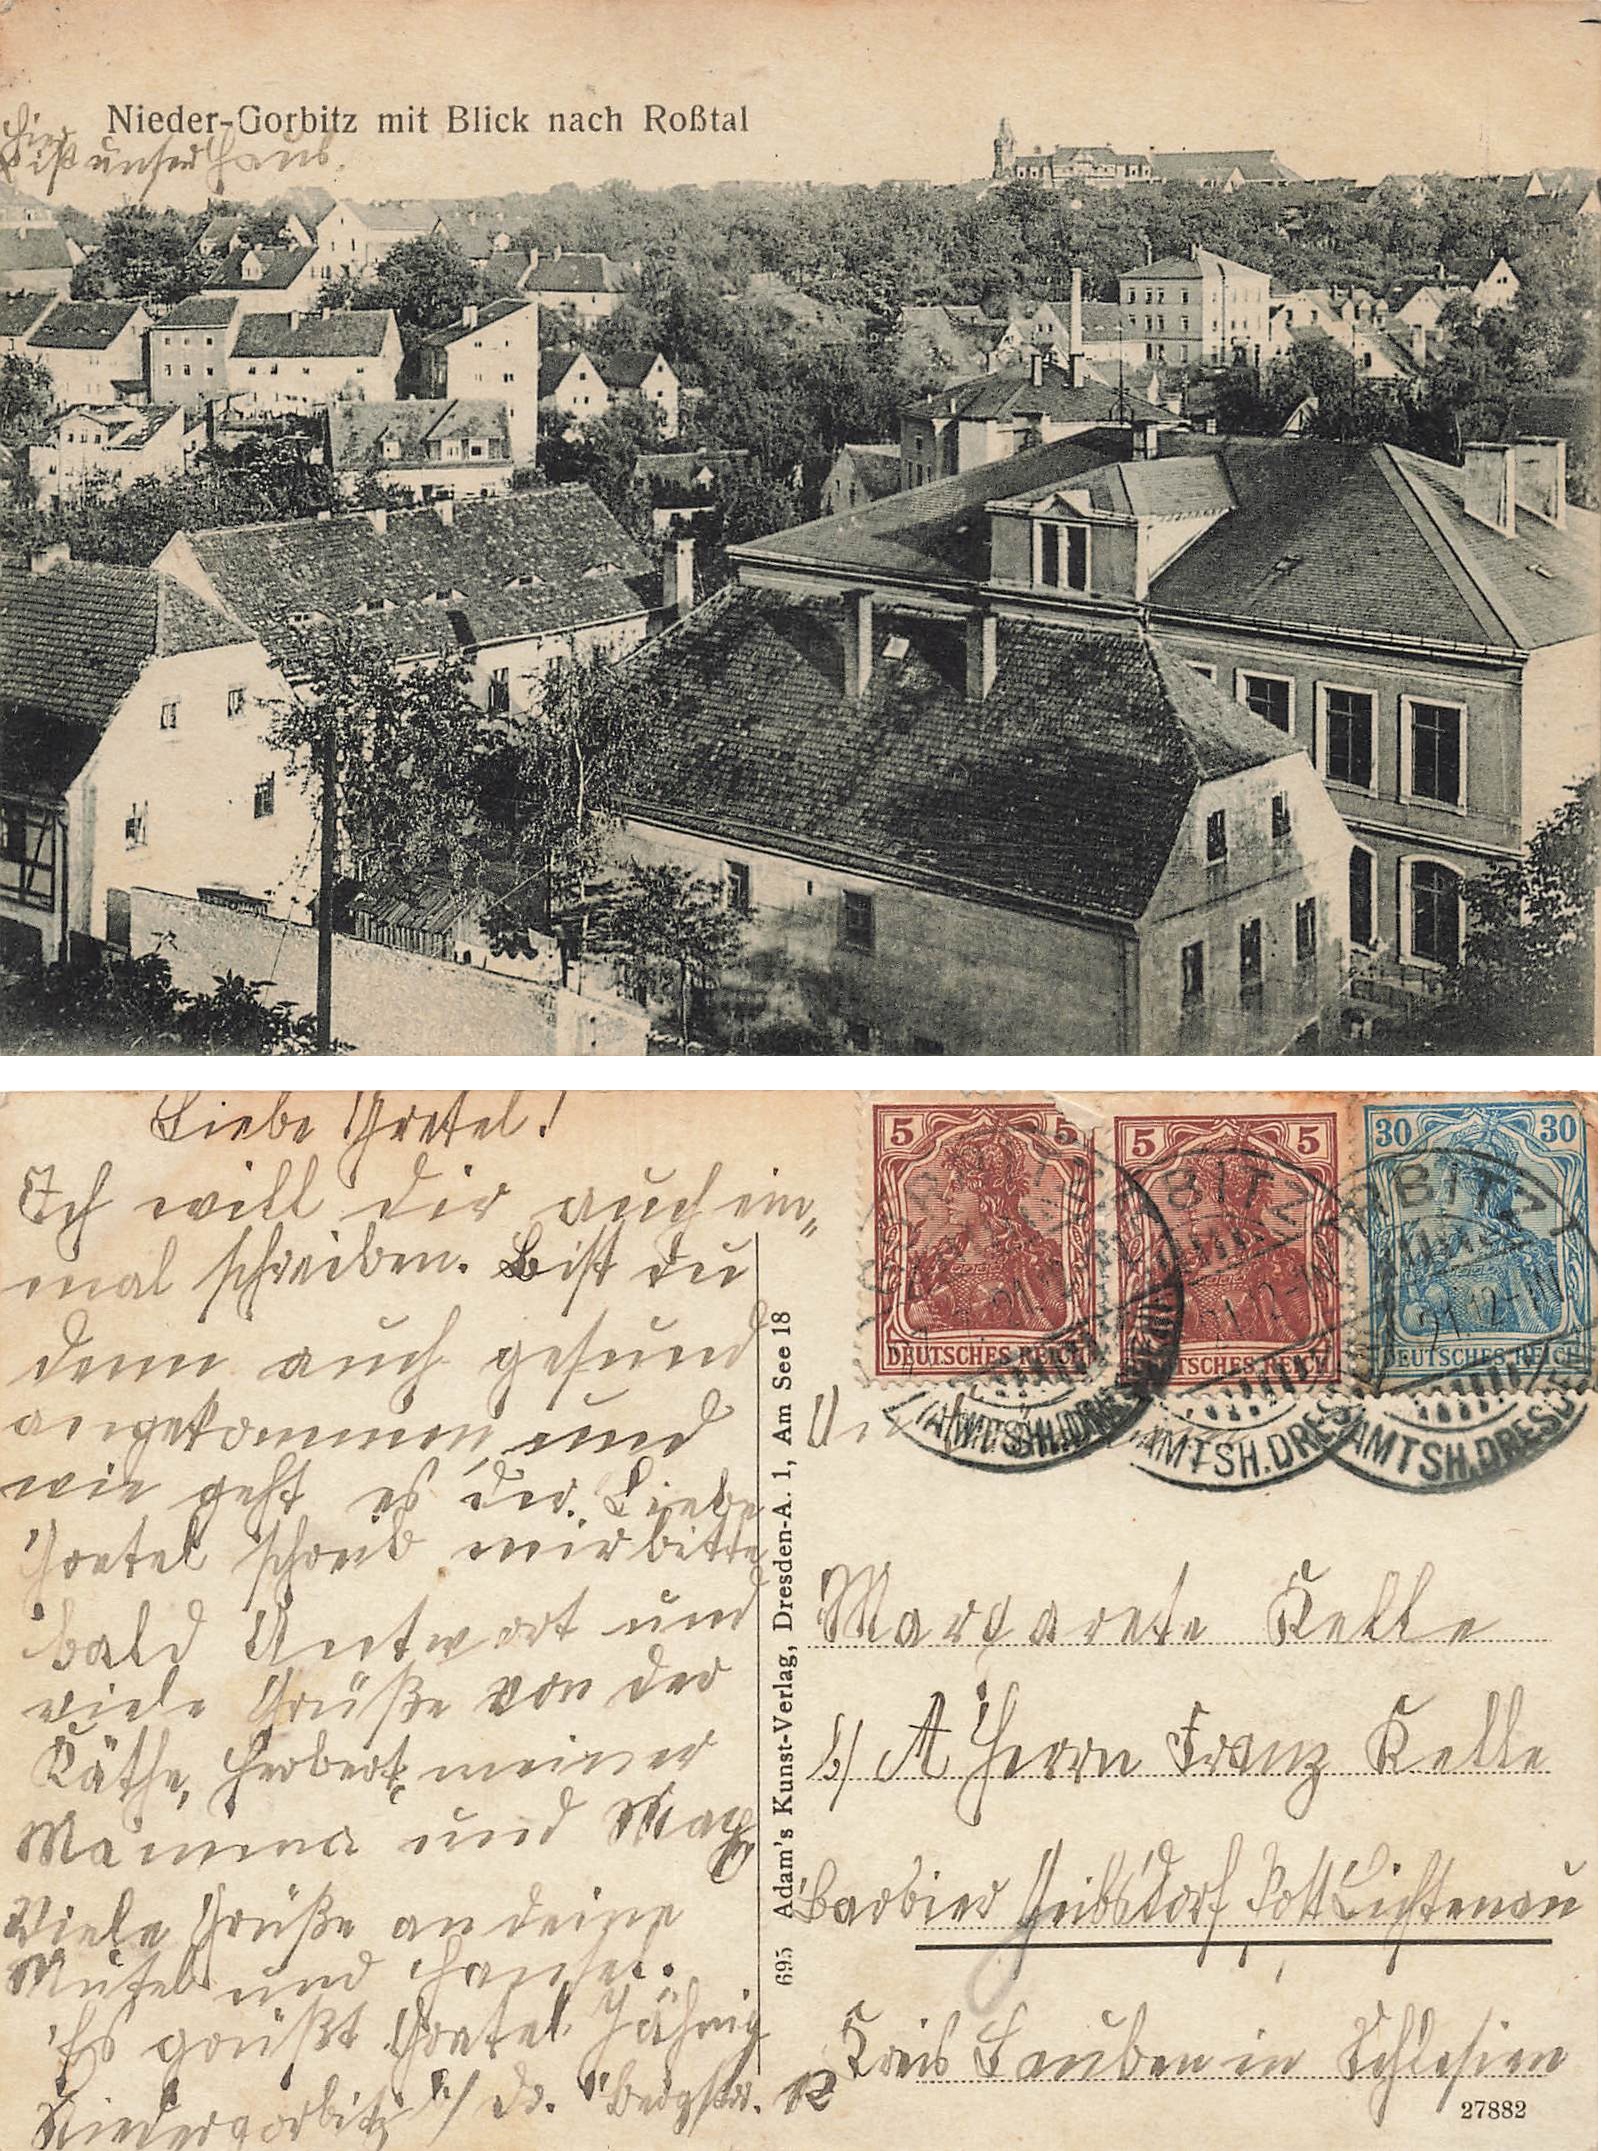 Nieder-Gorbitz mit Blick nach Roßtal
Hier
ist unser Haus.
Liebe Gretel!
Ich will dir auch ein-
mal schreiben. Bist du
denn auch gesund
angekommen, und
wie geht es dir. Liebe
Gretel schreib mir bitte
bald Antwort und
viele Grüße von der
Käthe, Herbert, meiner
Mamma und
Viele Grüße an deine
und Hansel.
Es grüßt Gretel Jährig
Niedergorbitz b/ Dr. Bergstr. 12
695 Adam's Kunst-Verlag, Dresden-A. 1, Am See 18
5 5
DEUTSCHES REICH
5 5
DEUTSCHES REICH
30 30
DEUTSCHES REICH
GORBITZ
21.12-1N
(AMTSH. DRESDEN)
An
Margarete Kelle
b/ A Herrn Franz Kelle
Barbier Geibsdorf Post Lichtenau
Kreis Lauben in Schlesien
27882